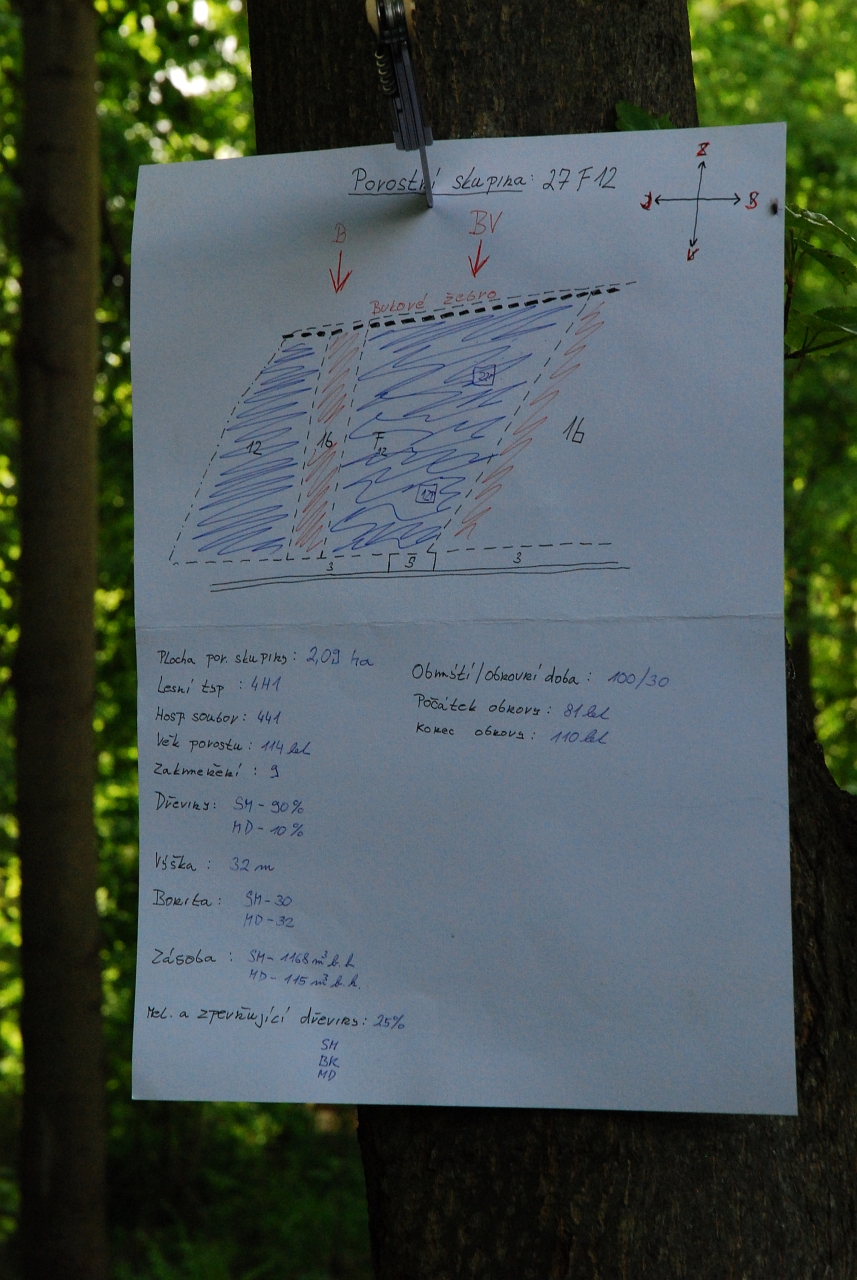 Porostní skupina: 27 F 12
Z
J
S
V
B
BV
Bukové žebro
12
16
F
12
16
3
5
3
Plocha por. skupiny: 2,09 ha
Lesní typ : 4H1
Hosp soubor: 441
Věk porostu: 114 let
Zakmenění : 9
Dřeviny: SM - 90%
MD - 10%
Výška : 32 m
Bonita: SM - 30
MD - 32
Zásoba : SM - 1168 m³ b. k.
MD - 115 m³ b. k.
Mel. a zpevňující dřeviny: 25%
SM
BK
MD
Obmýtí/obnovní doba : 100/30
Počátek obnovy: 81 let
Konec obnovy: 110 let